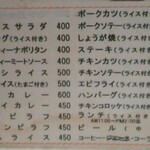 スサラダ 400
グ(ライス付き) 400
ティーナポリタン 400
ティーミートソース 400
シライス 500
イス(たまご付き) 500
カレー 450
イカレー 450
ピラフ 450
ンピラフ 450
ライス 450
ポークカツ(ライス付き)
ポークソテー(ライス付き)
しょうが焼(ライス付き)
ステーキ(ライス付き)
チキンカツ(ライス付き)
チキンソテー(ライス付き)
エビフライ(ライス付き)
ハンバーグ(ライス付き)
チキンコロッケ(ライス付き)
ランチ(ライス付き)
ビール(中